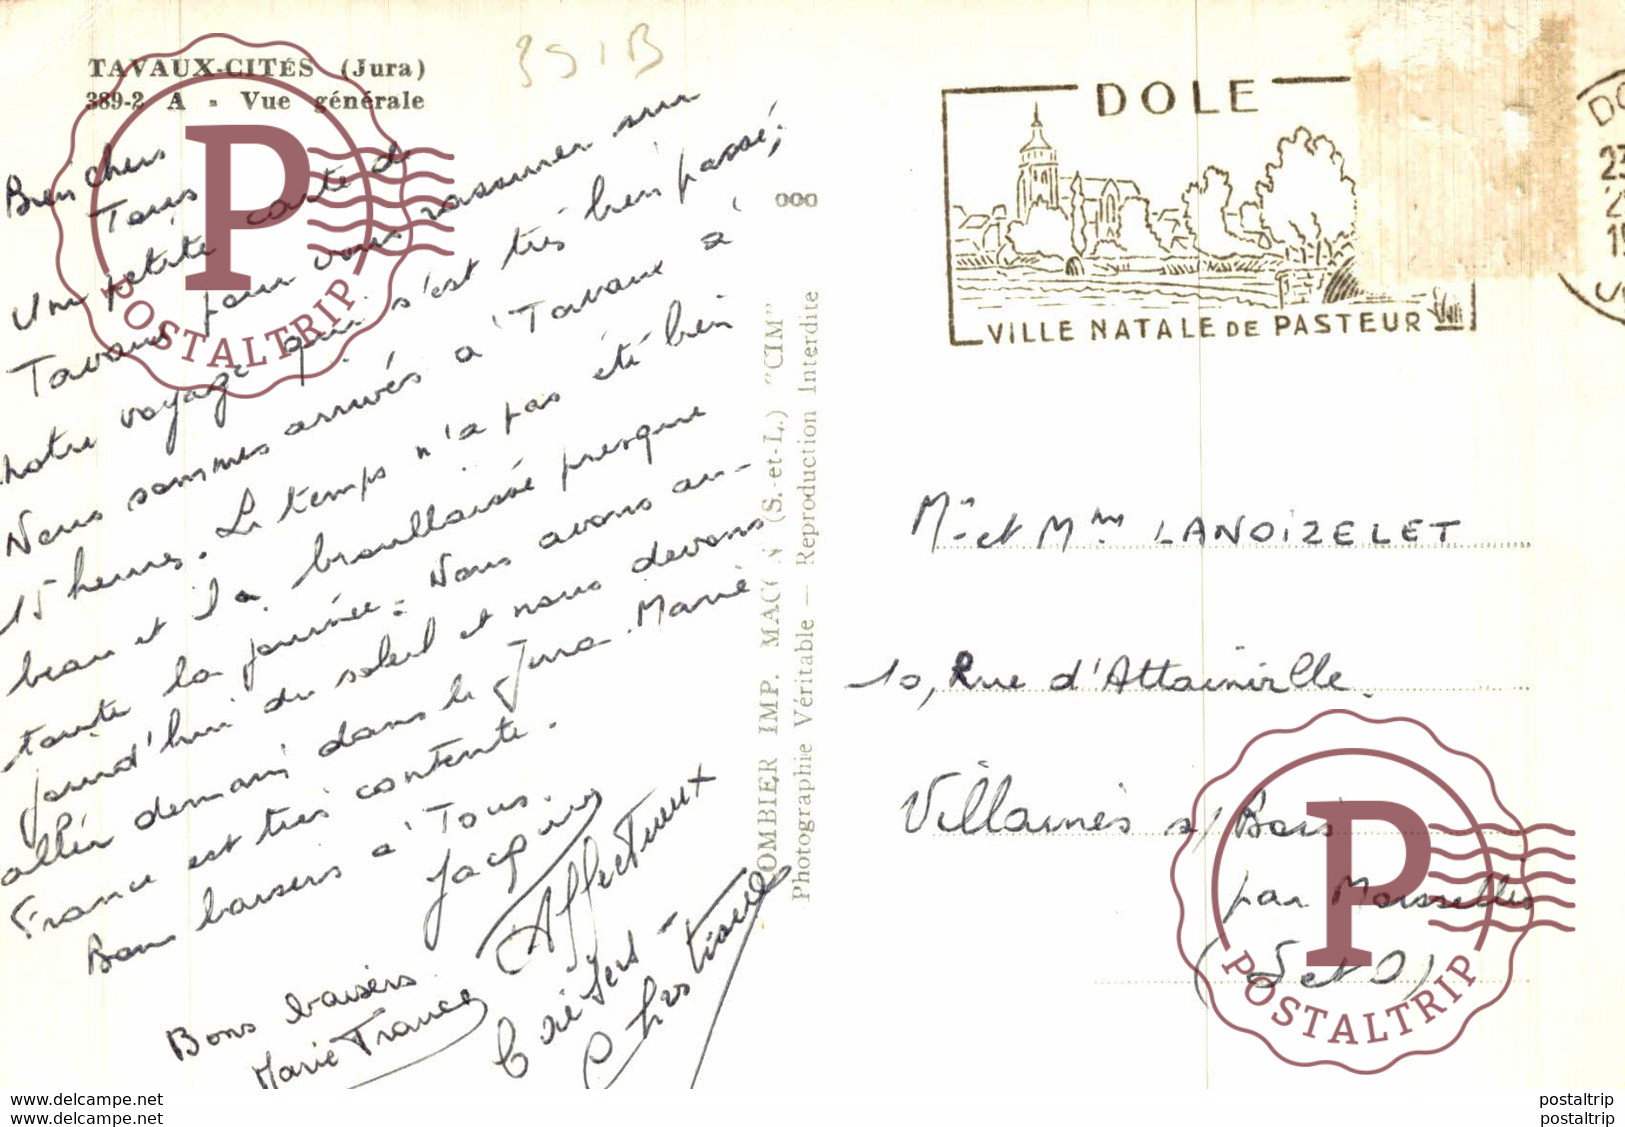 TAVAUX-CITÉS (Jura)
389-2 A - Vue générale
391B
Bien chers
Tous
Une petite carte de
Tavaux pour vous rassurer sur
notre voyage qui s'est très bien passé;
Nous sommes arrivés à Tavaux à
15 heures. Le temps n'a pas été bien
beau et il a brouillassé presque
toute la journée. Nous avons au-
jourd'hui du soleil et nous devons
aller demain dans le Jura. Marie
France est très contente.
Bons baisers à Tous.
Jacqui
Affectueux
baisers
Christiane
Bons baisers
Marie France
COMBIER IMP. MACON (S.-et-L.) "CIM"
Photographie Véritable — Reproduction Interdite
000
DOLE
VILLE NATALE DE PASTEUR
Mr et Mme LANOIZELET
10, Rue d'Attainville.
Villaines s/ Bois
par Moisselles
(S et O)
P
POSTALTRIP
P
POSTALTRIP
postaltrip
postaltrip
postaltrip
postaltrip